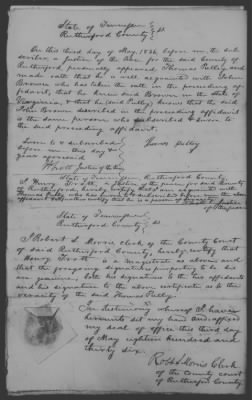 State of Tennessee
Rutherford County } SS
On this third day of May 1836 before me the sub
scriber, a Justice of the Peace for the said County of
Rutherford personally appeared Thomas Pully, and
made oath that he is well acquainted with John
Brown who has taken the oath in the preceeding af
fidavit, that he knew said Brown in the State of
Virginia, & that he (said Pully) knows that the said
John Brown described in the preceeding affidavit
is the same person who subscribed & swore to
the said preceeding affidavit.
Sworn to & subscribed
before me this day &
year aforesaid
Thomas Pully
State of Tennessee Rutherford County
I Henry Trott, a Justice of the peace for said County
State of Tennessee
Rutherford County } SS
I Robert S. Morris Clerk of the County Court
of said Rutherford County, hereby certify that
Henry Trott is a Magistrate as above and
that the foregoing signatures purporting to be his
are genuine, both his signature to the two affidavits
and his signature to the above certificate as to the
veracity of the said Thomas Pully.
In testimony whereof I have
hereunto set my hand and affixed
my seal of office this third day
of May eighteen hundred and
thirty six.
Robt S Morris Clerk
of the County Court
of Rutherford County